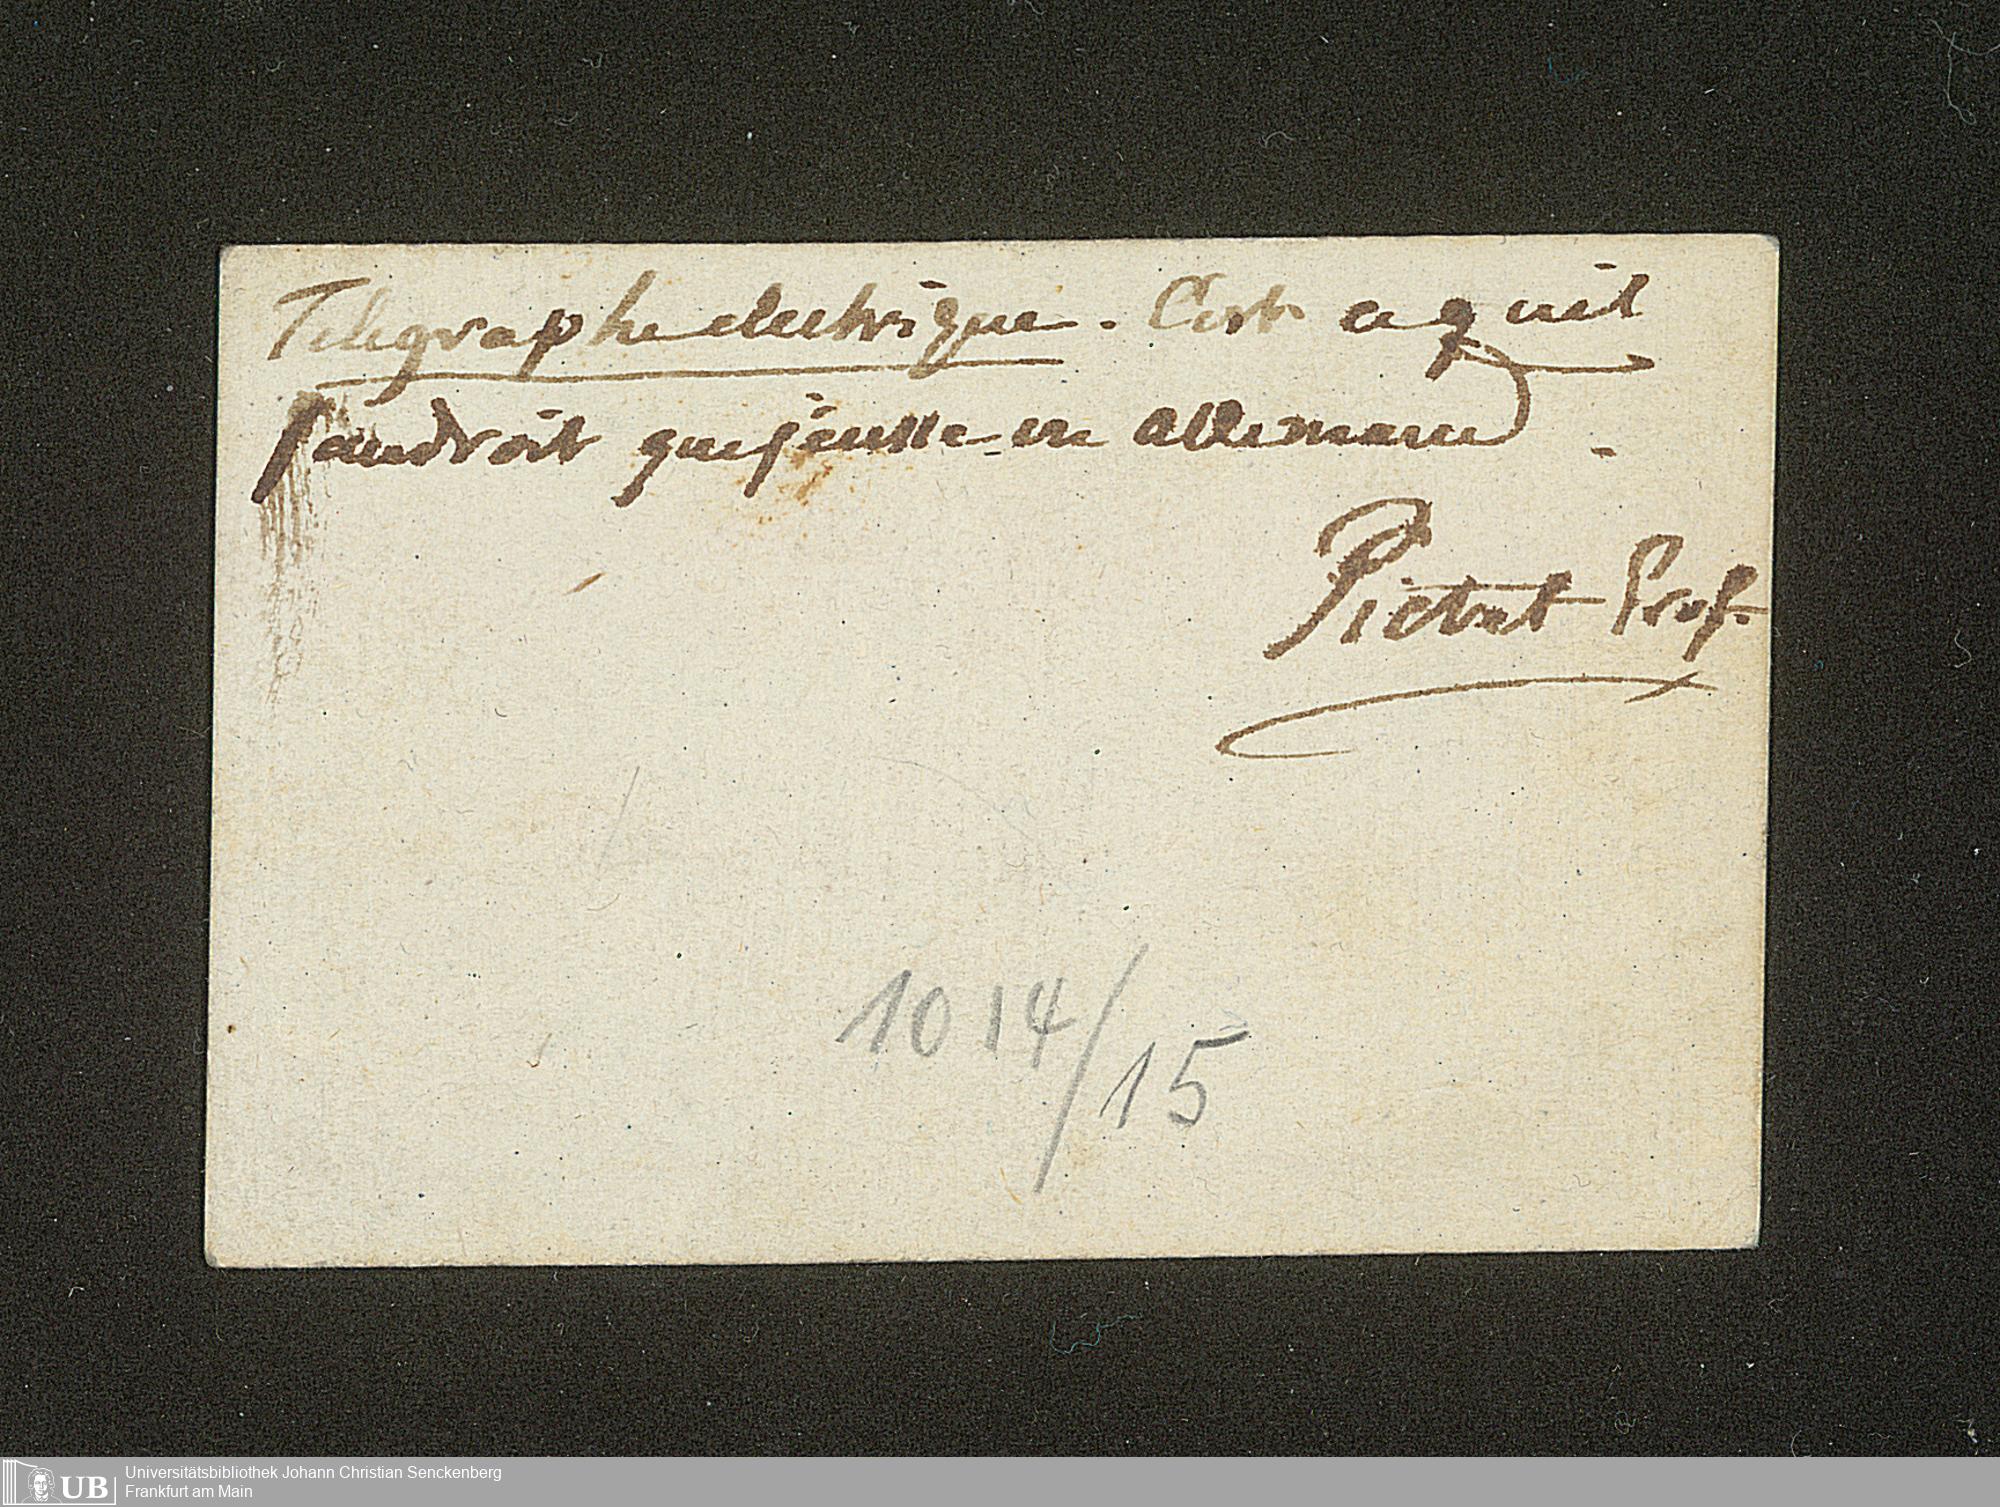 Telegraphe electrique. C'est ce qu'il
faudroit que j'eusse en allemand.
Pictet Prof.
1014/15
UB
Universitätsbibliothek Johann Christian Senckenberg
Frankfurt am Main